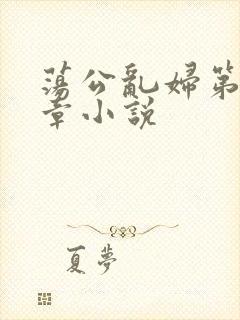 蕩公亂婦第
章小説
夏夢